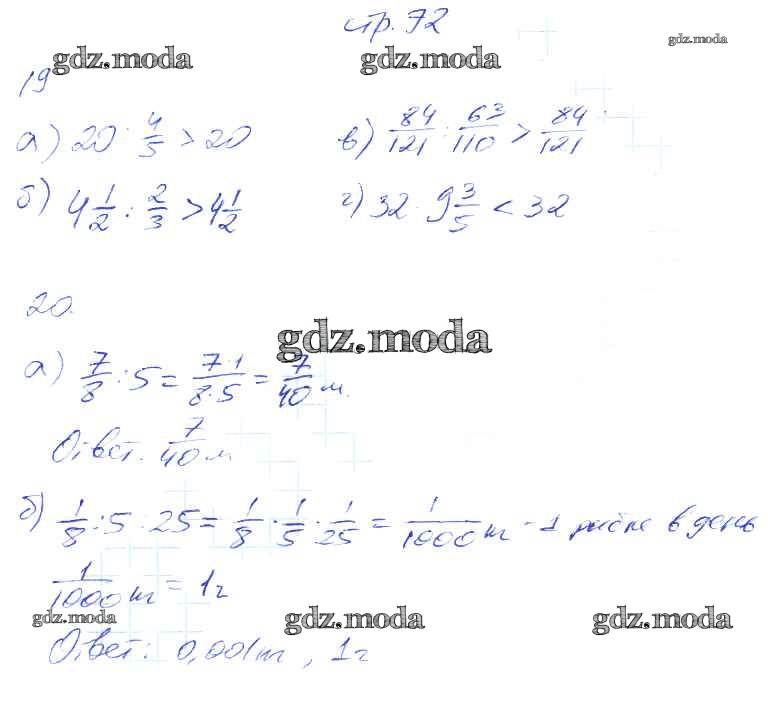 стр. 72
gdz.moda gdz.moda gdz.moda
19
а) 20 : 4/5 > 20 в) 84/121 : 63/110 > 84/121
б) 4 1/2 : 2/3 > 4 1/2 г) 32 : 9 3/5 < 32
20.
gdz.moda
а) 7/8 : 5 = 7·1/8·5 = 7/40 м.
Ответ. 7/40 м
б) 1/8 : 5 : 25 = 1/8 · 1/5 · 1/25 = 1/1000 кг - 1 рыбке в день
1/1000 кг = 1 г
gdz.moda gdz.moda gdz.moda
Ответ: 0,001 кг, 1 г